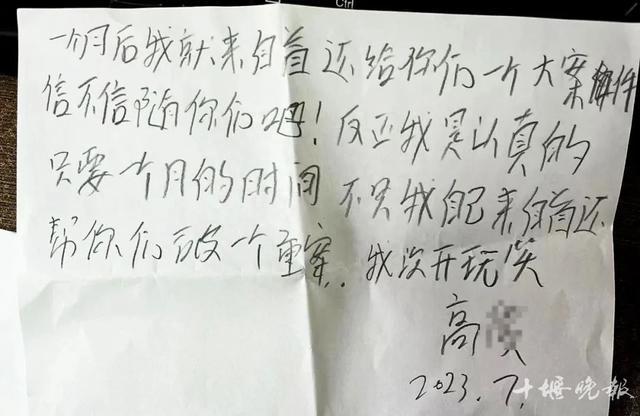 一个月后我就来自首还给你们一个大案件
信不信随你们吧！反正我是认真的
只要一个月的时间 不只我自己来自首还
帮你们破一个重案．我没开玩笑
高
2023.7.
十堰晚报
Ctrl